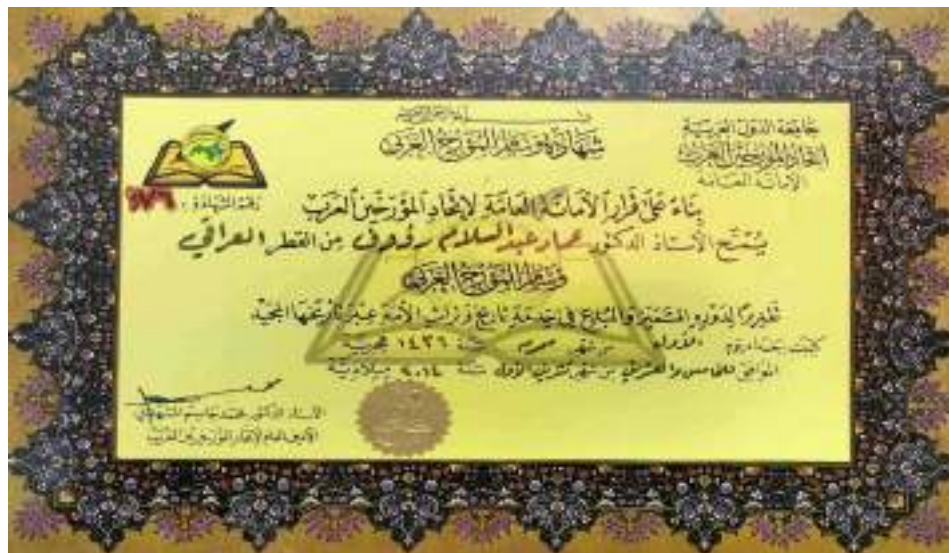 بسم الله الرحمن الرحيم
شهادة وسام المؤرخ العربي
جامعة الدول العربية
اتحاد المؤرخين العرب
الامانة العامة
رقم الشهادة :
بناءً على قرار الأمانة العامة لاتحاد المؤرخين العرب
يُمنح الأستاذ الدكتور عماد عبد السلام رؤوف من القطر العراقي
وسام المؤرخ العربي
تقديرًا لدوره المتميز والمبدع في خدمة تاريخ وتراث الأمة عبر تاريخها المجيد
كتبت ببغداد يوم الأول من شهر محرم سنة ١٤٣٦ هجرية
الموافق للخامس والعشرين من شهر تشرين الأول سنة ٢٠١٤ ميلادية
الأستاذ الدكتور محمد جاسم المشهداني
الأمين العام لاتحاد المؤرخين العرب